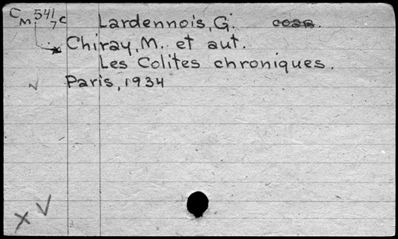 Cm 541/7c
Lardennois, G.
Chiray, M. et aut.
Les Colites chroniques.
Paris, 1934